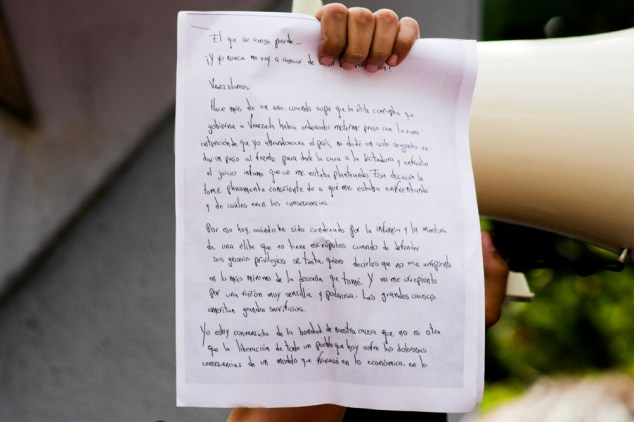 El que se cansa pierde...
¡Y yo nunca me voy a cansar de
Venezolanos:
Hace más de un año cuando supe que la élite corrupta que
gobierna a Venezuela había ordenado meterme preso con la
intención de que yo abandonara el país, no dudé un solo segundo en
dar un paso al frente para darle la cara a la dictadura y enfrentar
el juicio infame que se me estaba planteando. Esa decisión la
tomé plenamente consciente de a qué me estaba enfrentando
y de cuáles eran las consecuencias.
Por eso hoy, cuando he sido condenado por la infamia y la mentira
de una élite que no tiene escrúpulos cuando de defender
sus groseros privilegios se trata, quiero decirles que no me arrepiento
en lo más mínimo de la decisión que tomé. Y no me arrepiento
por una razón muy sencilla y poderosa: Las grandes causas
ameritan grandes sacrificios.
Yo estoy convencido de la bondad de nuestra causa que no es otra
que la liberación de todo un pueblo que hoy sufre las dolorosas
consecuencias de un modelo que fracasó en lo económico, en lo